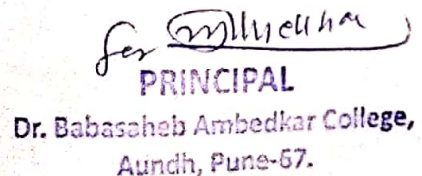 for
PRINCIPAL
Dr. Babasaheb Ambedkar College,
Aundh, Pune-67.